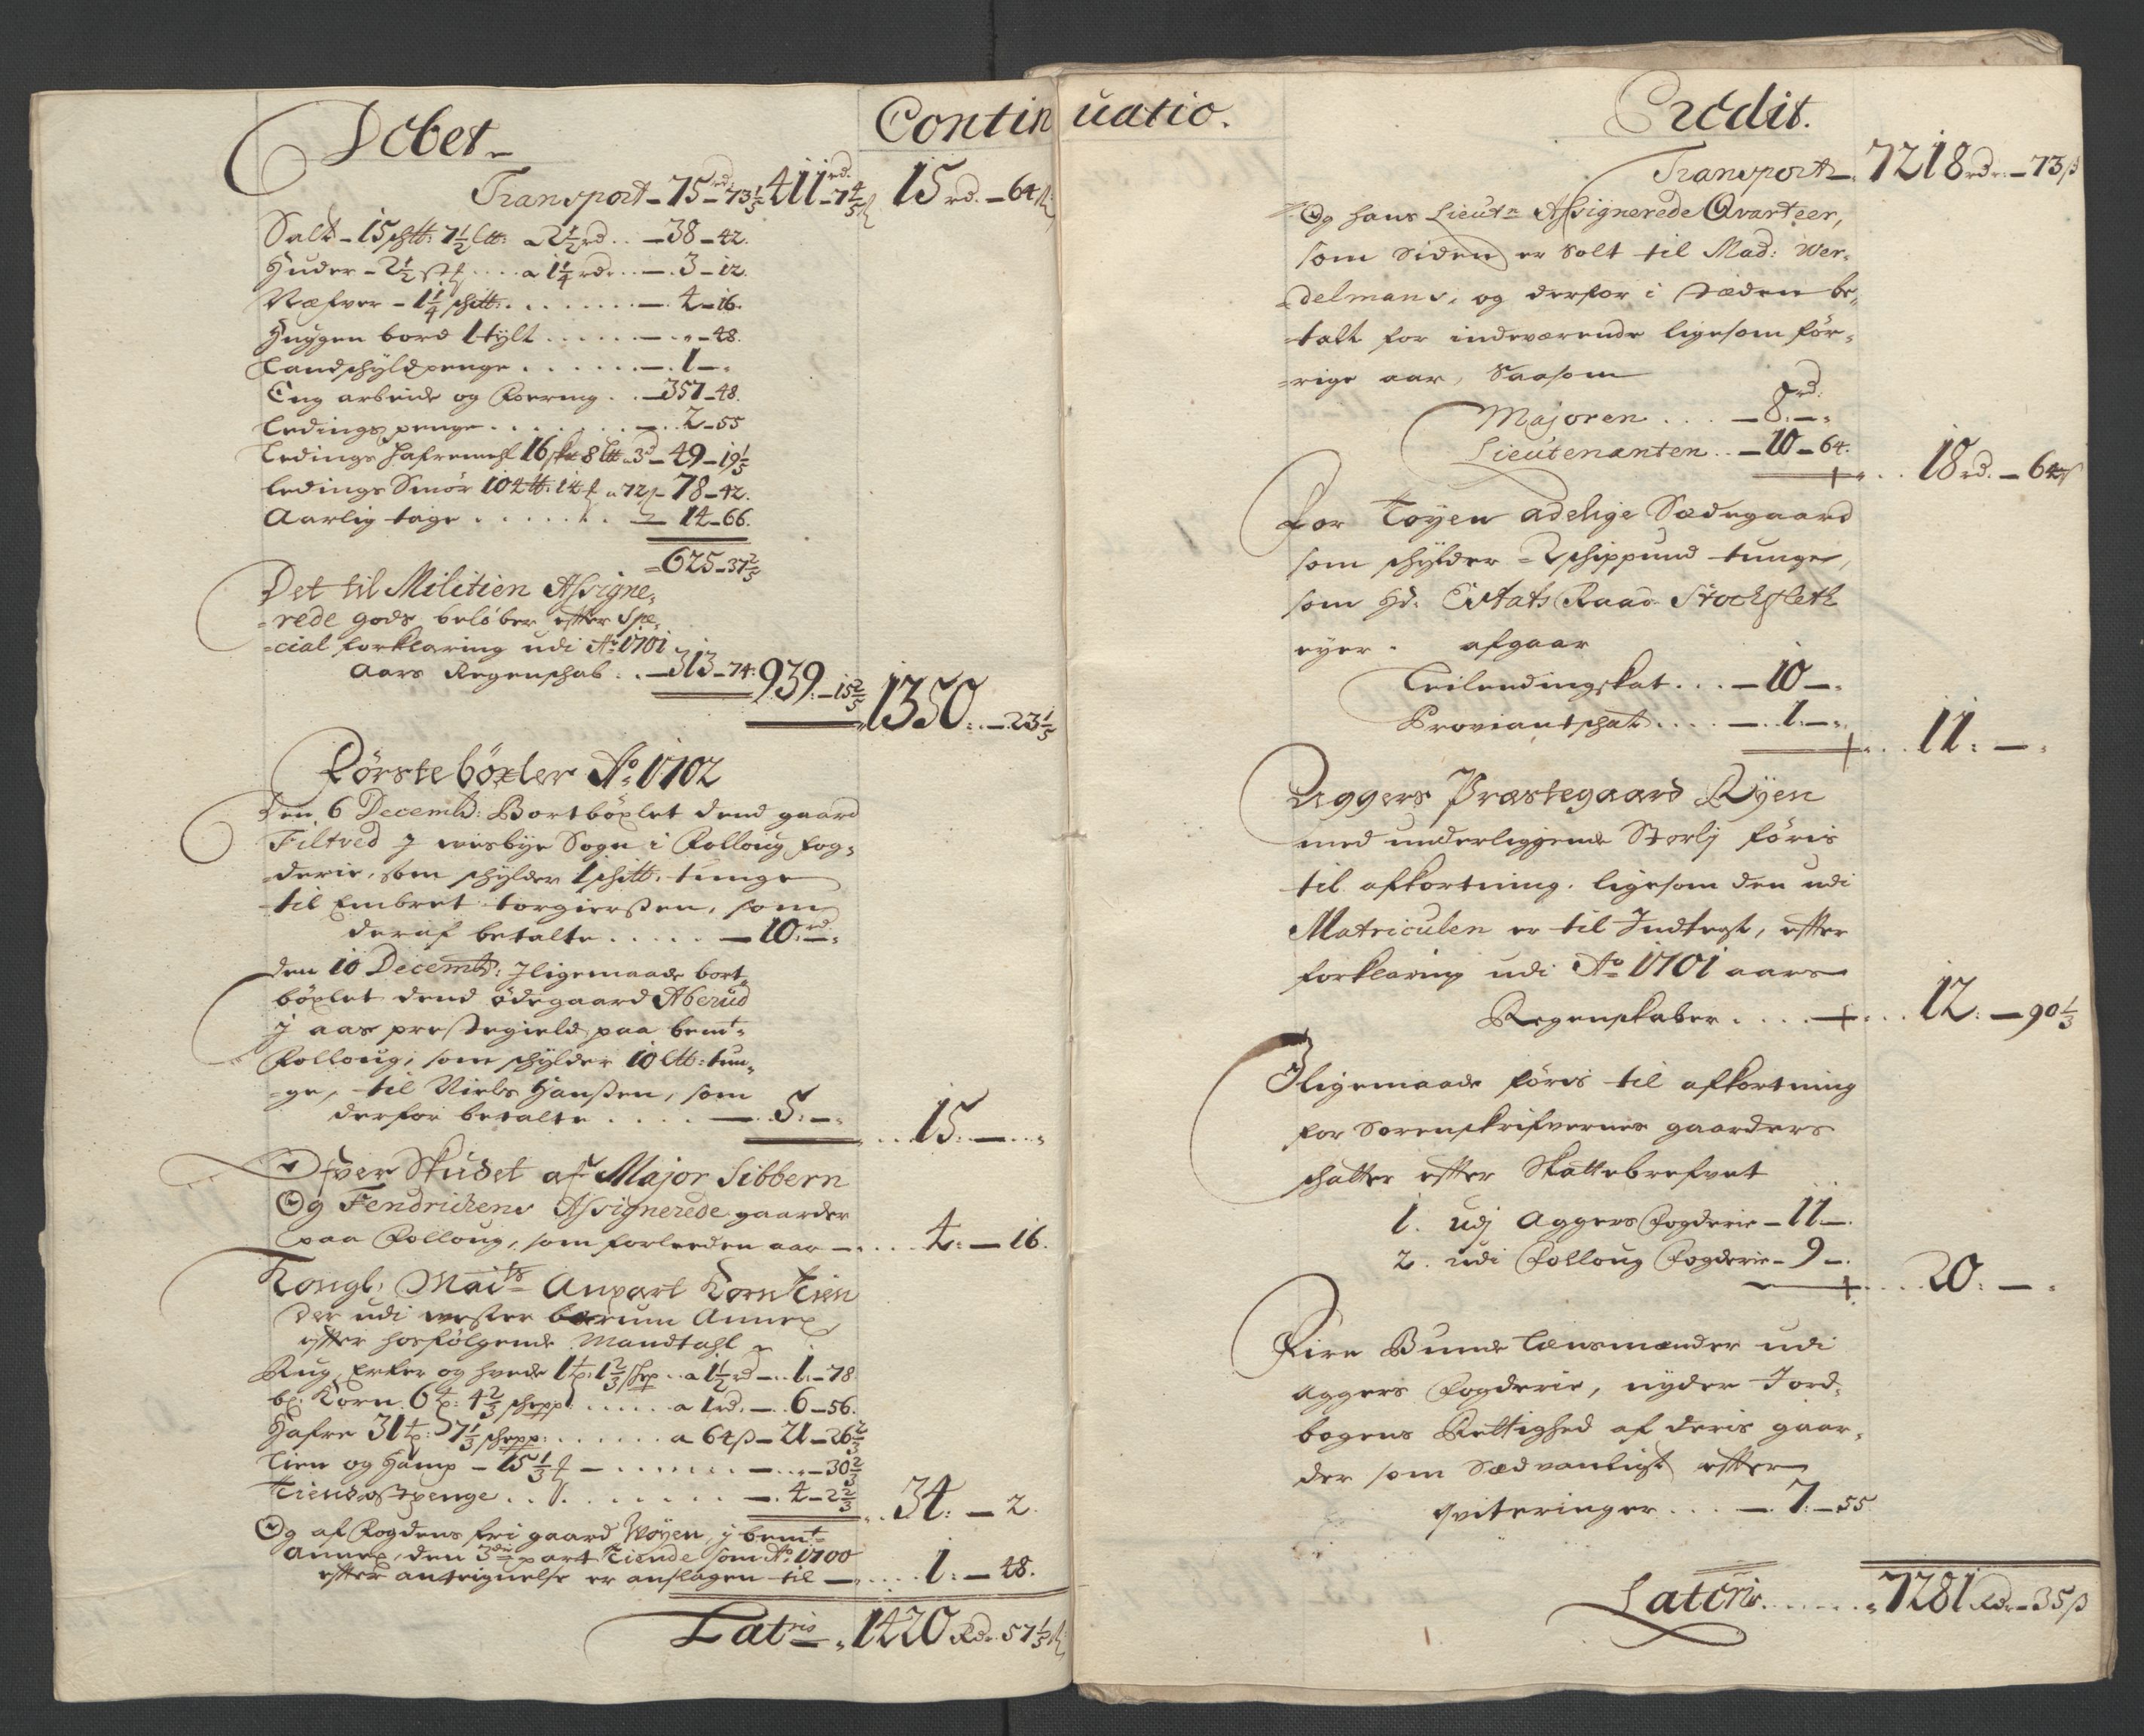 Debet
Continuatio.
Transport – 75 rd – 73 1/5 411 rd – 7 4/5 ß 15 rd. – 64 ß
Salt – 15 schtt: 7 1/2 ltt: a 2 1/2 rd . . – 38 – 42.
Huder – 2 1/2 st . . . . a 1 1/4 rdr . . . – . 3 – 12.
Næfver – 1 1/4 schtt: . . . . . . . . – . 4 – 16.
Huggen bord 1 tylt . . . . . . – „ – 48.
Landschyldpenge . . . . . . – . 1 – „
Eng arbeide og Foering . . – 357 – 48.
Ledings penge . . . . . . . – . 2 – 55
Ledings Hafremehl 16 sk 8 ltt a 3 rd – 49 – 19 1/5
Ledings Smör 104 tt: 14 a 72 ß – 78 – 42.
Aarlig tage . . . . . . . – 14 – 66.
= 625 – 37 2/5
Det til Militien Assigne=
=rede gods beløber efter Spe=
=cial forklaring udi Ao 1701
Aars Regenschab . . – 313 – 74: 939: – 15 2/5 1350: – 23 1/5
Förstebøxler Ao 1702
Den 6 Decembr: Bortböxlet dend gaard
Filtved J wesbye Sogn i Folloug fog=
=derie, som schylder 1 schtt. tunge
til Embret torgierßen, som
deraf betalte . . . . . – 10 rd: – „
den 10 Decembr: Jligemaade bort=
böxlet dend ödegaard Aberud
J aas prestegield paa bemt=
Folloug, som schylder 10 ltt: tun=
=ge, til Niels Hanßen, som
derfor betalte . . . . – . 5: – „ . . . 15: – . . . „
Ofver Skudet af Major Sibbern
Og Fendrichens Assignerede gaarder
paa Follong, som forleeden aar – . . . . 4: – 16.
Kongl: Maits Anpart Korn Tien
der udi wester bærum Annex,
efter hosfølgende Mandtahl
Rug, Erter og hvede 1 t: 1 2/3 schep . . a 1 1/2 rd – . 1: – 78
bl: Korn 6 t: 4 2/3 schepp . . . . . . a 1 rd. – . 6 – 56.
Hafre 31 t: 7 1/3 schepp: . . . . . . . a 64 ß – 21 – 26 2/3
Lien og Hamp – 15 1/3 – . . . . . . – . „ – 30 2/3
Tiendostpenge . . . . . . . . . – . 4 – 2 2/3 . . 34: – 2.
Og af Fogdens fri gaard Wøyen j bemt=
Annex, den 3die part Tiende som Ao 1700
efter antegnelse er anslagen til – . . . . . 1: – 48.
Latris „ 1420 Rdr 57 1/5 ß
Credit.
Transport – . 7218 rdr: – 73 ß
Og hans Lieutn Assignerede Qvarteer,
som siden er Solt til Mad: Wer=
=delmans, og derfor i Stæden be=
=talt for indeværende ligesom för=
=rige aar, Saasom
Majoren . . . . – 8 rd: – „
Lieutenanten . . – 10 – 64. . . 18 rd. – 64 ß
For Töyen adelige Sædegaard
som schylder – 2 schippund tunge,
som Hr: Estats Raad Stochfleth
eyer . afgaar
Leilendingskat . . . – 10 – „
Proviantschat . . . . – . 1. – „ . . . 11: – „
Aggers Præstegaard Ryen
med underliggende Storlj föris
til afkortning, ligesom den udi
Matriculen er til Indtegt, efter
forklaring udi Ao 1701 aars
Regenskaber . . . . . . . 12: – 90 1/3
Jligemaade föris til afkortning
for Sorenskrifvernes gaarders
schatter efter Skattebrefvet
1. udj Aggers Fogderie – 11 – .
2. udi Follong Fogderie – 9 – .
. . . . 20: – „
Fire Bunde Lensmænder udi
Aggers Fogderie, nyder Jord=
bogens Rettighed af deris gaar=
der som Sædvanligt efter
qviteringer . . . – . 7: – 55
Lateris . . . . . . . „ 7281 Rdr – 35 ß